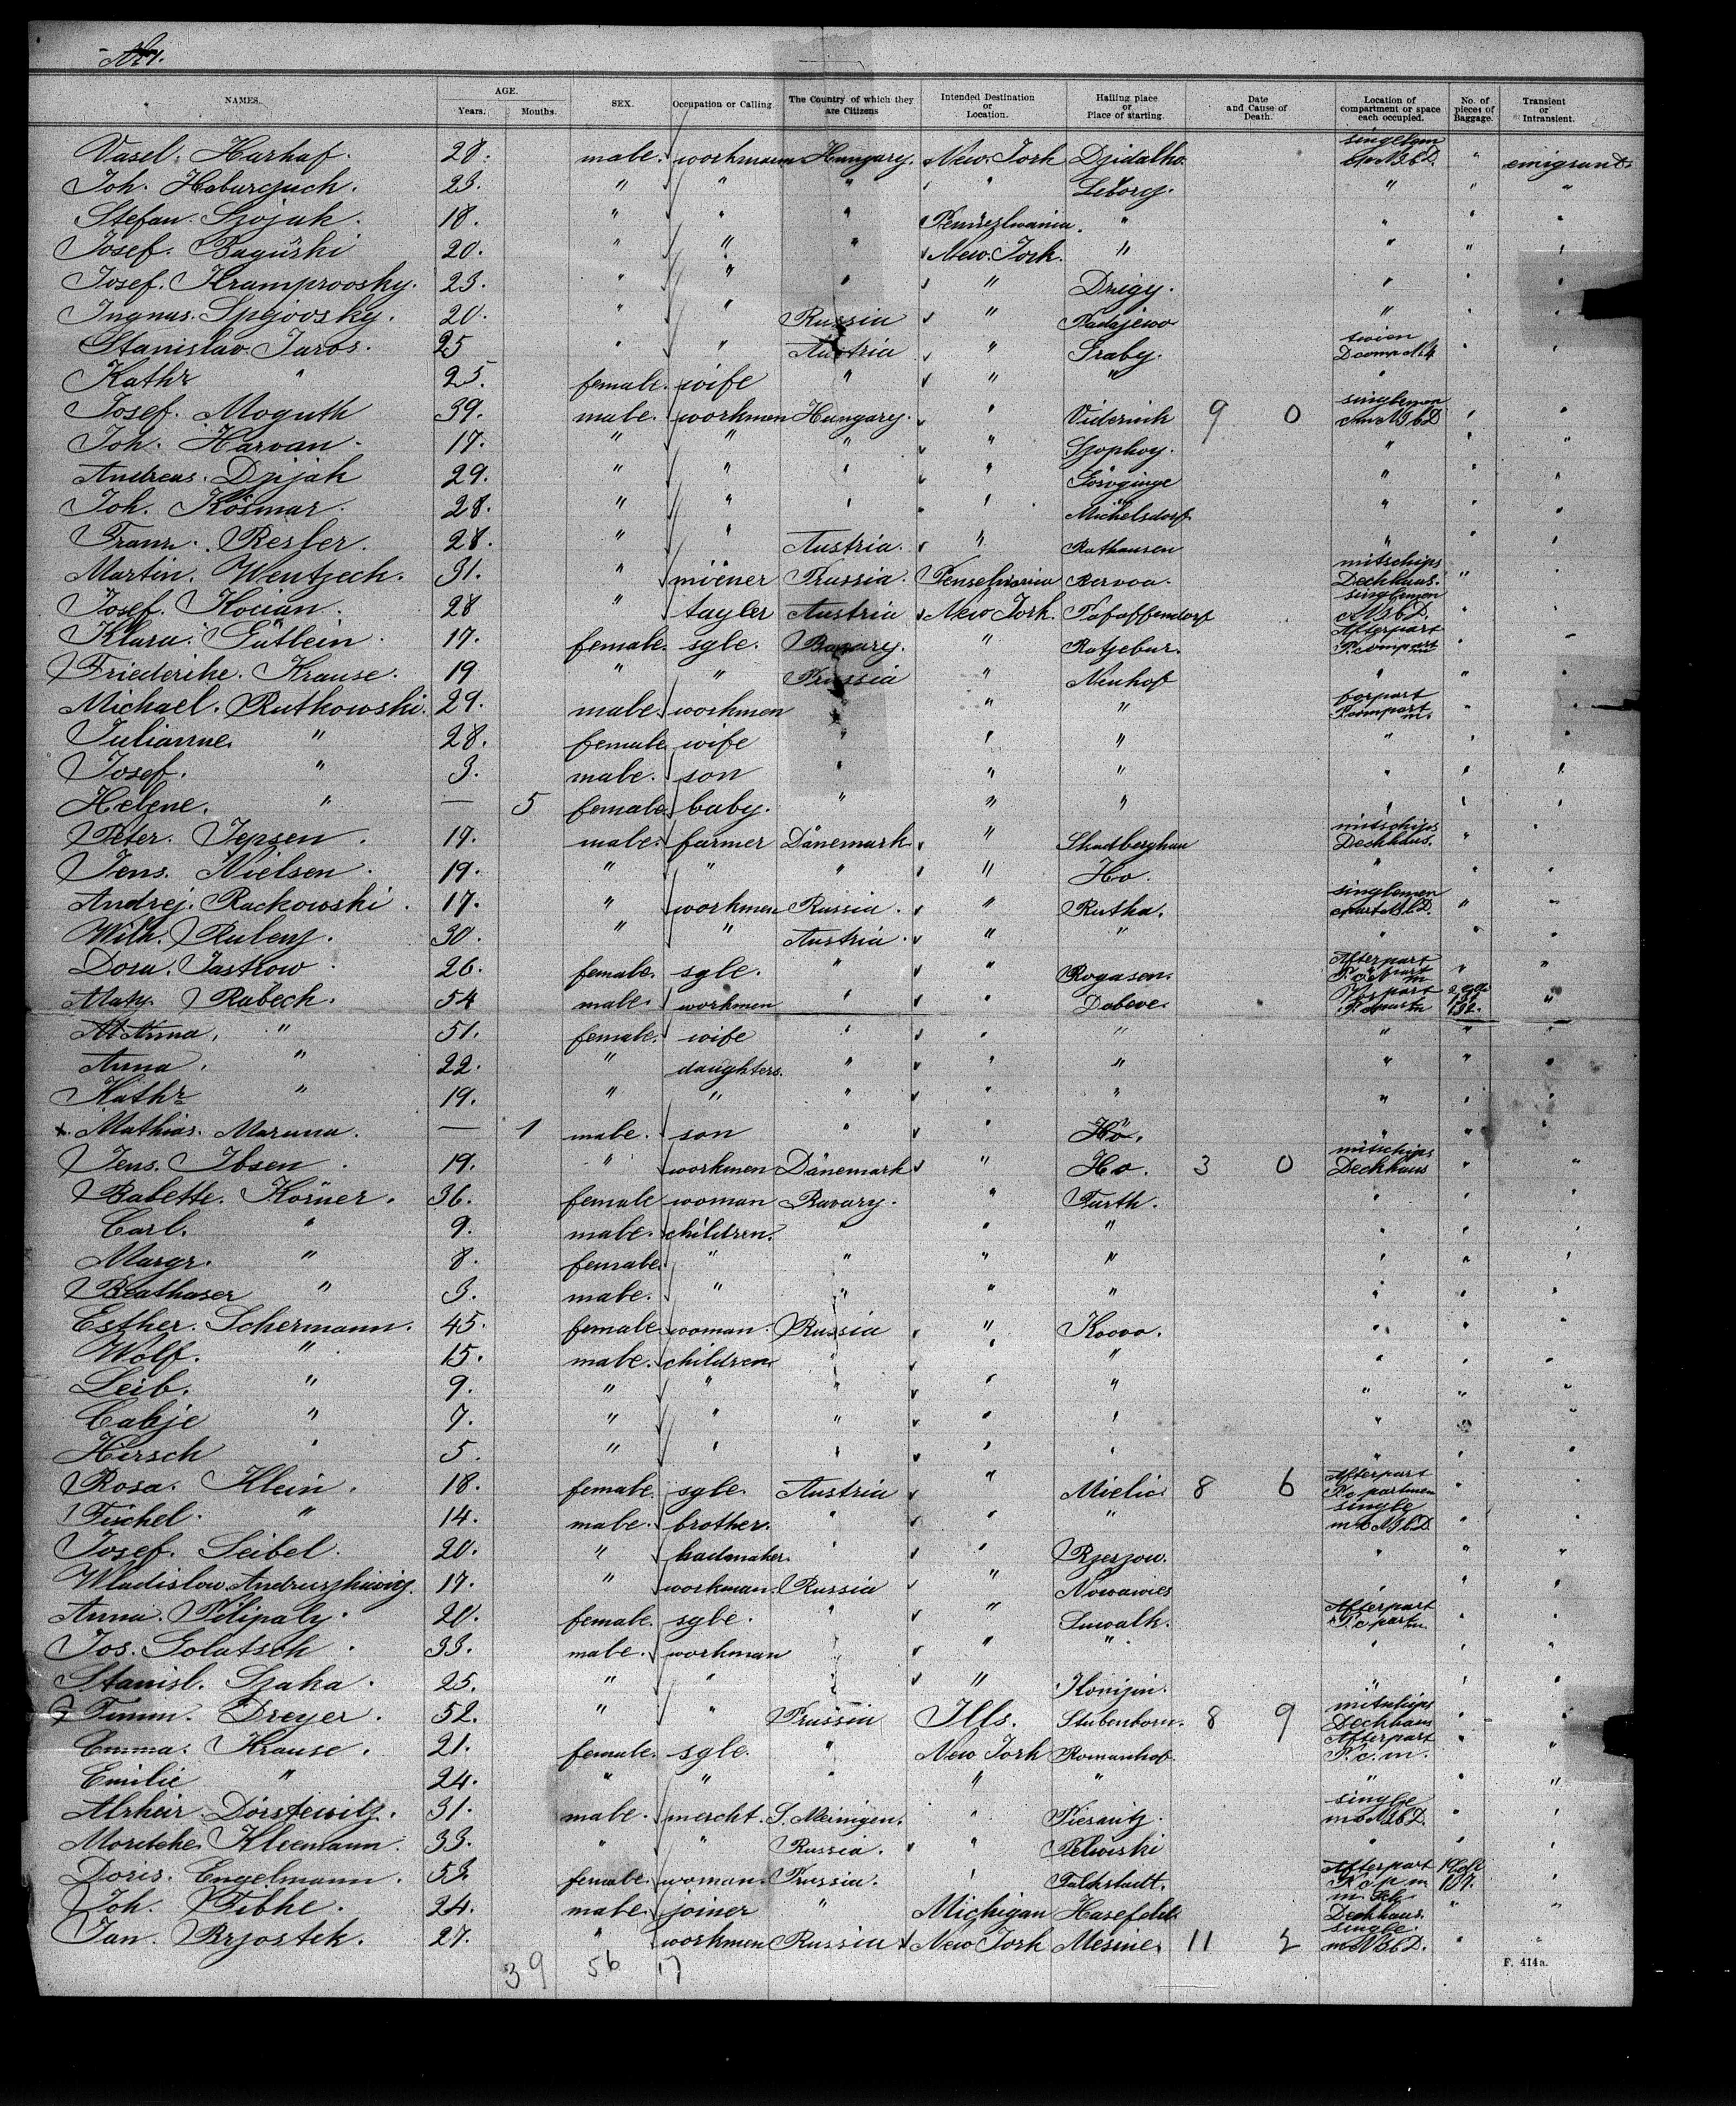 No 1.
NAMES. AGE. Years. Months. SEX. Occupation or Calling The Country of which they are Citizens Intended Destination or Location. Hailing place or Place of starting. Date and Cause of Death. Location of compartment or space each occupied. No. of pieces of Baggage. Transient or Intransient.
Vasel. Harhaf. 28. male. workmann Hungary. New. York Dzidalho. " emigrand.
Joh. Haburczuch. 23. " " " " Leborcz. " " "
Stefan. Szojak. 18. " " " Pennszlwania. " " " "
Josef. Bagurski 20. " " " New. York. " " " "
Josef. Kramprowsky. 23. " " " " Drzigy. " " "
Ingnus. Spejowsky. 20. " " Russia " Radzjewo " " "
Stanislav. Jaros. 25 " " Austria " Graby. " "
Kathr " 25. female. wife " " " "
Josef. Moguth 39. male. workmen Hungary. " Vidernik 9 0 singlemen " "
Joh. Harvan. 17. " " " " Szophoy. " " "
Andreas. Dzijak 29. " " " " Görvginye " " "
Joh. Kösmar. 28. " " " " Michelsdorf " " "
Franz. Resler. 28. " " Austria. " Rathausen " " "
Martin. Wentzech. 31. " miener Prussia. Penselwania mitschips Deckhaus. " "
Josef. Kocian. 28 " tayler Austria New York. Pafaffendorf singlemen No 3 6 D. " "
Klara. Gütlein 17. female. sgle. Bavary. " Ratzebur. Afterpart P. compart " "
Friederike. Krause. 19 " " Prussia " Neuhof " " "
Michael. Rutkowski. 29. male. workmen " " " forpart P. compart " "
Julianne. " 28. female wife " " " " " "
Josef. " 3. male. son " " " " " "
Helene. " — 5 female. baby. " " " " " "
Peter. Jepsen. 17. male. farmer Dänemark. " mitschips Deckhaus. " "
Jens. Nielsen. 19. " " " " Ho. " " "
Andrej. Rackowski. 17. " workmen Russia. " Rutha. singlemen " "
Wilh. Rulenz. 30. " " Austria. " " " " "
Dora. Jastrow. 26. female. sgle. " " Rogasen. Afterpart " "
Math. Rabech. 54 male. workmen " " Dobeve. "
Anna. " 51. female. wife " " " " " "
Anna. " 22. " daughters. " " " " " "
Kathr " 19. " " " " " " " "
x. Mathias. Maruna. — 1 male. son " " Ho. " " "
Jens. Ibsen. 19. " workmen Dänemark " Ho. 3 0 mitschips Deckhaus " "
Babette. Körner. 36. female woman Bavary. " Furth. " " "
Carl. " 9. male. children. " " " " " "
Margr. " 8. female. " " " " " " "
Balthaser " 3. male. " " " " " " "
Esther. Schermann. 45. female. woman. Russia " Kowo. " " "
Wolf. " 15. male. children " " " " " "
Leib. " 9. " " " " " " " "
Cahje " 7. " " " " " " "
Hirsch " 5. " " " " " " " "
Rosa. Klein. 18. female. sgle. Austria " Mielic 8 6 Afterpart P. c. partmen " "
Fischel. " 14. male. brother. " " " single m. c. No 3 6 D " "
Josef. Seibel. 20. " " " Rzerzow. " " "
Wladislow Andruszkiwicz. 17. " workman. Russia " Nowawies " " "
Anna. Pilipaly. 20. female. sgle. " " Suwalk. Afterpart P. c. part m. " "
Jos. Golatsch. 33. male. workman " " " " " "
Stanisl. Szaka. 25. " " " " Konizin. " " "
Timm. Dreyer. 52. " " Prussia Ills. Stubenborn. 8 9 mitschips Deckhaus " "
Emma. Krause. 21. female. sgle. " New York Romanhof. Afterpart P. c. m. " "
Emilie " 24. " " " " " " " "
Dörstewitz. 31. male. mercht. S. Meinigen. " single m. c. No 3 6 D. " "
Moritche Kleemann. 33. " " Russia. " Pilwiski " " "
Doris. Engelmann. 53. female. woman. Prussia. " Falckstadt. Afterpart 107. "
Joh. Fibke. 24. male. joiner " Michigan Hasefeld. Deckhaus. " "
Jan. Brzostek. 27. " workmen Russia New York Mesine 11 2 single. m No 3 6 D. " "
39 56 17
F. 414a.